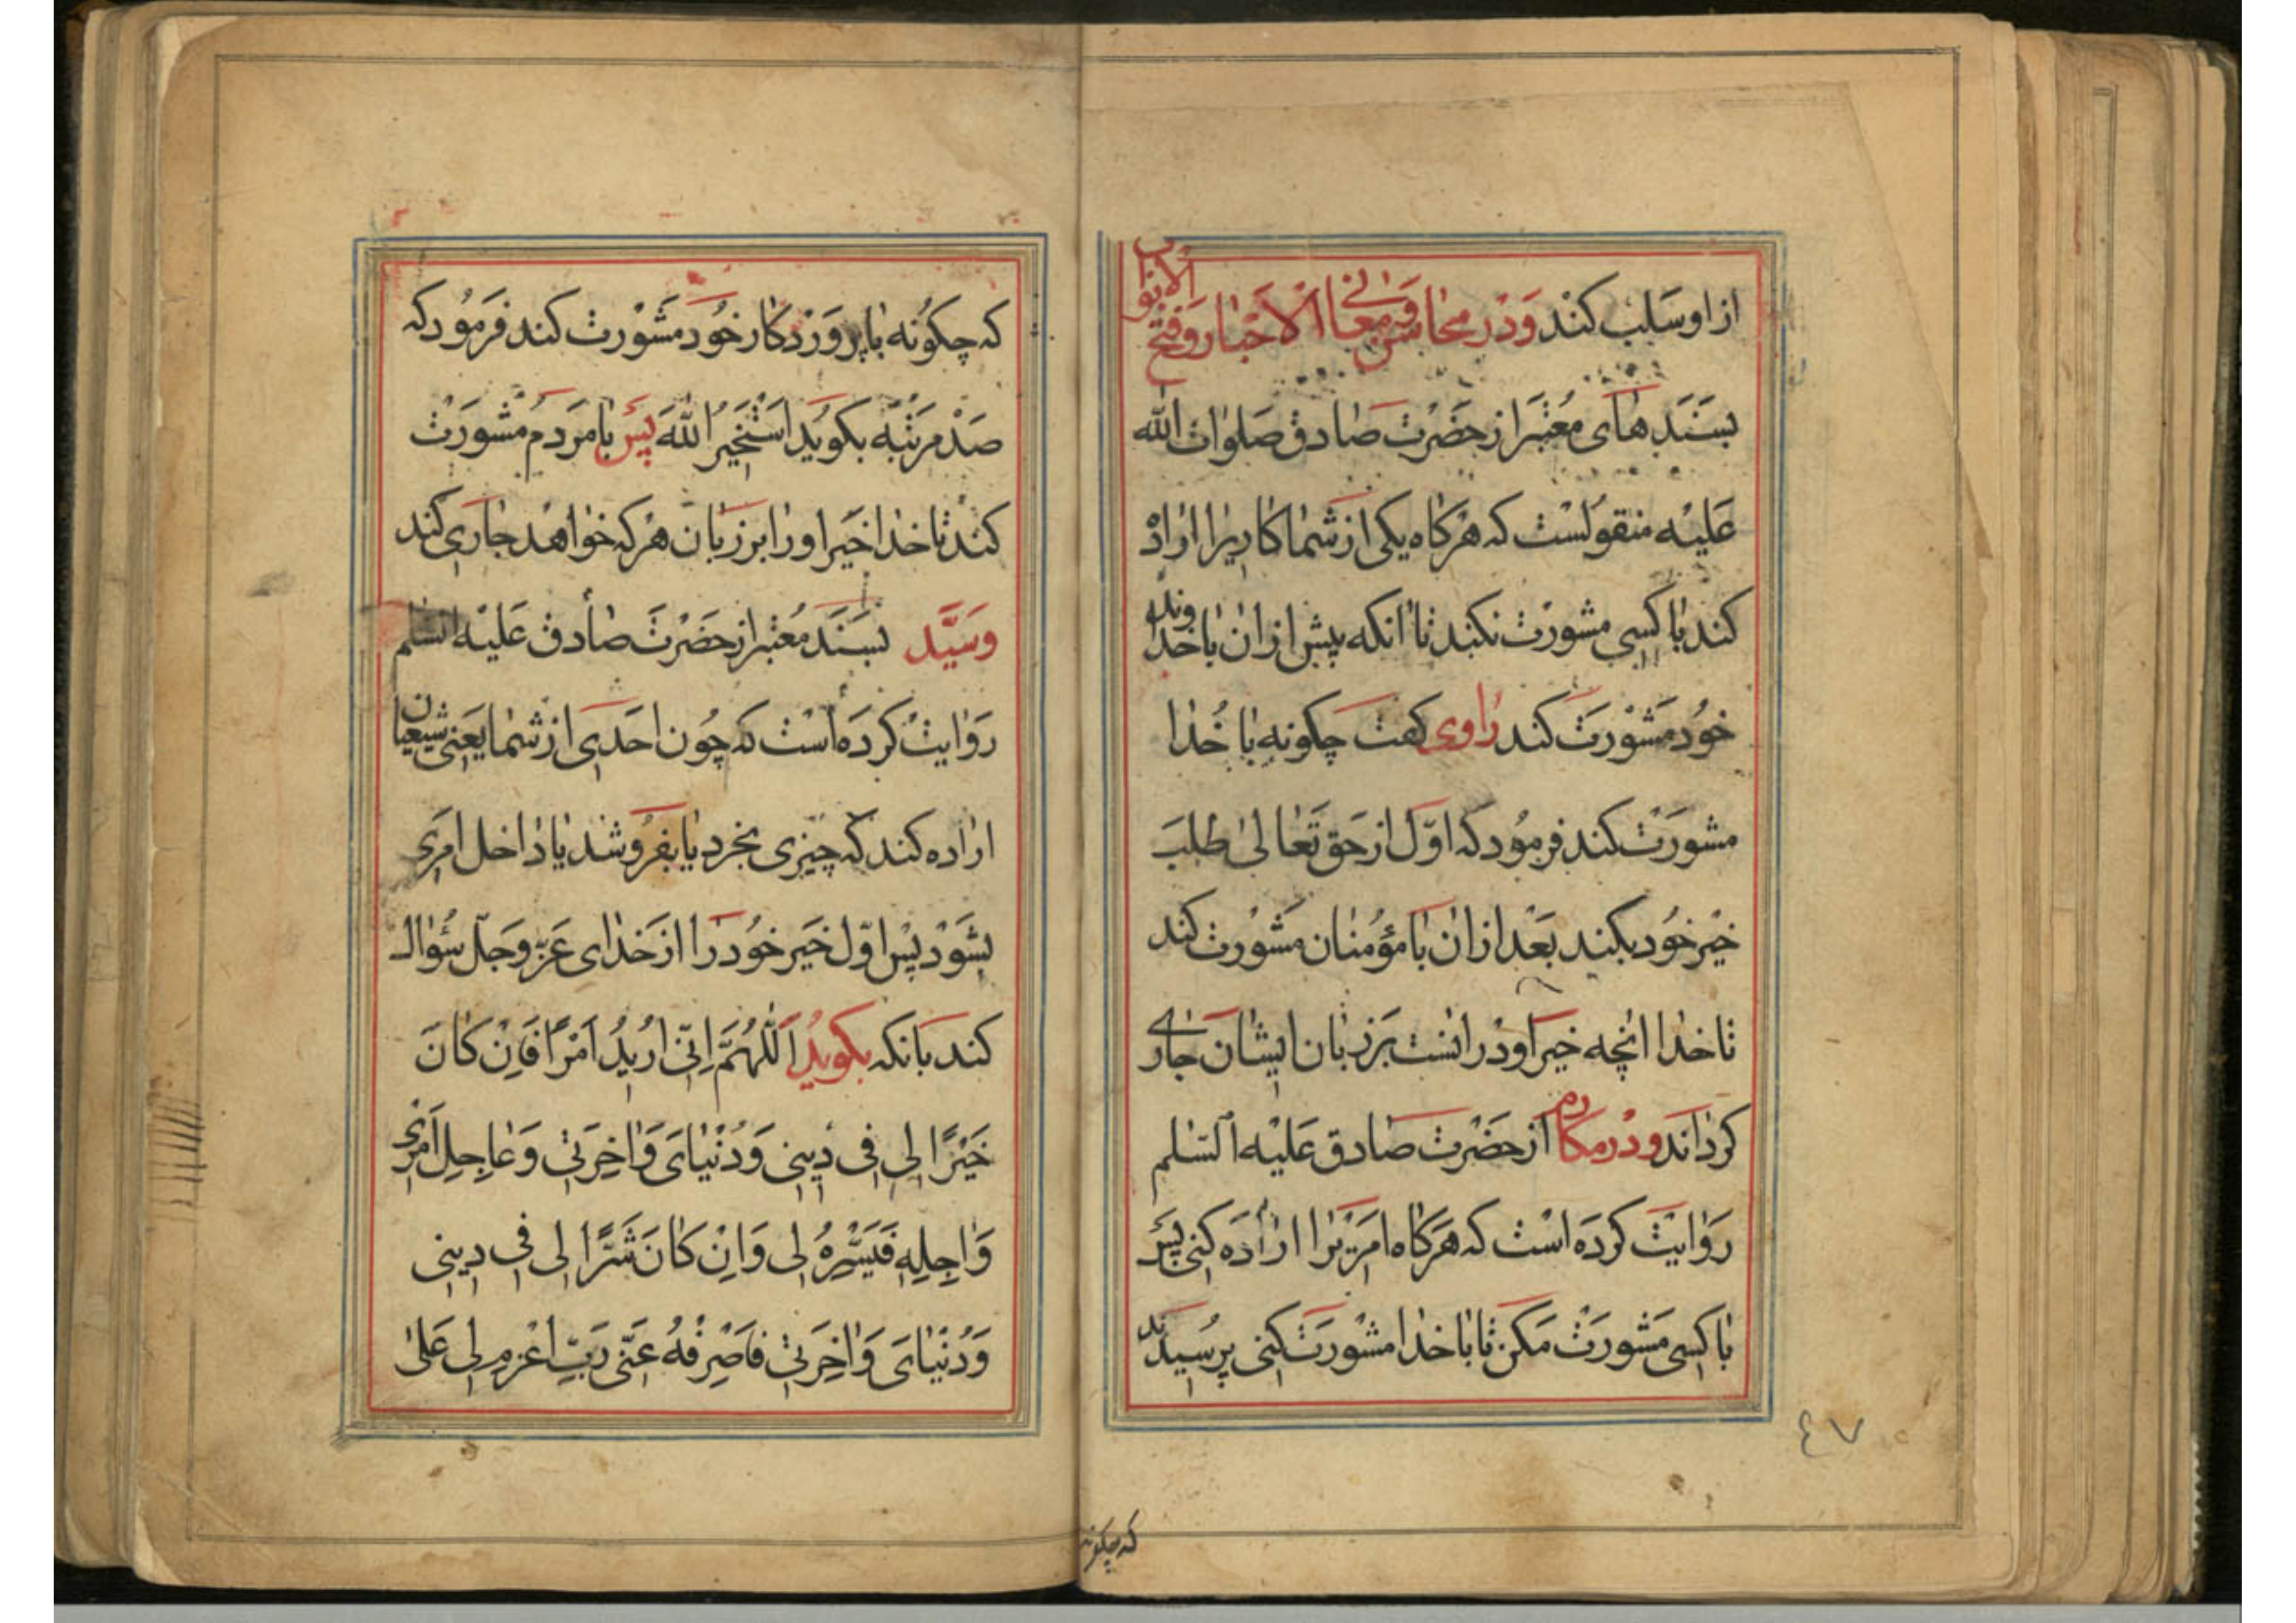 از او سَلب کند وَدَر محاسن و معانی الاخبار و فتح الابواب
بسَنَدهای مُعتبر از حَضرت صادق صَلوات الله
عَلَیه منقولست که هَرکاه یکی از شما کاریرا اراده
کند با کسی مشورت نکند تا انکه پیش از ان با خداوند
خود مَشورَت کند راوی کفت چکونه با خُدا
مشورَت کند فرمود که اوّل از حَق تَعالی طلبَ
خیر خُود بکند بَعد از ان با مؤمنان مَشورت کند
تا خدا انچه خیر او در انست بَر زبان ایشان جاری
کرداند ودر مکارم از حَضرت صادق عَلیه السّلم
رَوایَت کردَه است که هَرکاه امریرا ارادَه کنی پَس
با کسی مَشورَت مَکن تا با خدا مشورَت کنی پرسیدند
که چکونه
٤٧
که چکُونه با پروَردکار خُود مَشورت کند فَرمُود که
صَد مرتبَه بکویَد اَستَخیرُ اللهَ پَس با مَردم مَشورَت
کند تا خدا خَیر او را بر زبان هر که خواهد جاری کند
وَسَیّد بسَنَد مُعتبر از حَضرَت صادق عَلَیه السّلم
رَوایت کردَه است که چُون احَدی از شما یَعنی شیعیان
اراده کند که چیزی بخرد یا بفرُوشد یا داخل امری
بشَود پس اوّل خَیر خُود را از خَدای عَزّ وجَلّ سُؤال
کند بانکه بکویدُ اَللّهُمَّ اِنّی اُریدُ اَمرًا فَاِن کانَ
خَیرًا لی فی دینی وَدُنیایَ وَاخِرَتی وَعاجِلِ اَمری
وَاجِلِهِ فَیَسِّرهُ لی وَاِن کانَ شَرًّا لی فی دینی
وَدُنیایَ وَاخِرَتی فَاصرِفهُ عَنّی رَبِّ اعْزم لی عَلی